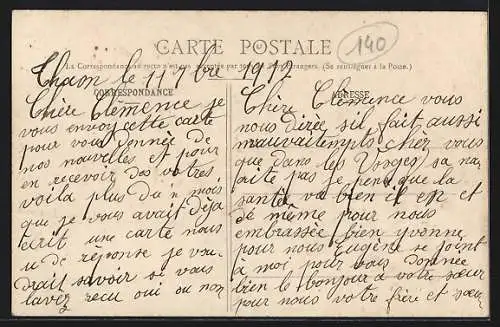 CARTE POSTALE
140
La Correspondance au recto n'est pas acceptée par tous les Pays étrangers. (Se renseigner à la Poste.)
Thaon le 11 9bre 1912
CORRESPONDANCE
Chère Clémence je
vous envoy cette carte
pour vous donnée de
nos nouvelles et pour
en recevoir des votres.
voila plus d'un mois
que je vous avait déja
écrit une carte nous
u de réponse je vou
drait savoir si vous
lavez recu oui ou non
ADRESSE
Chère Clémence vous
nous direz s'il fait aussi
mauvaitemps chez vous
que dans les Vosges sa na
faite pas je pense que la
santé va bien il en et
de même pour nous
embrassée bien yvonne
pour nous Eugène se joint
a moi pour vous donnée
bien le bonjour a votre sœur
pour nous votre frère et sœur